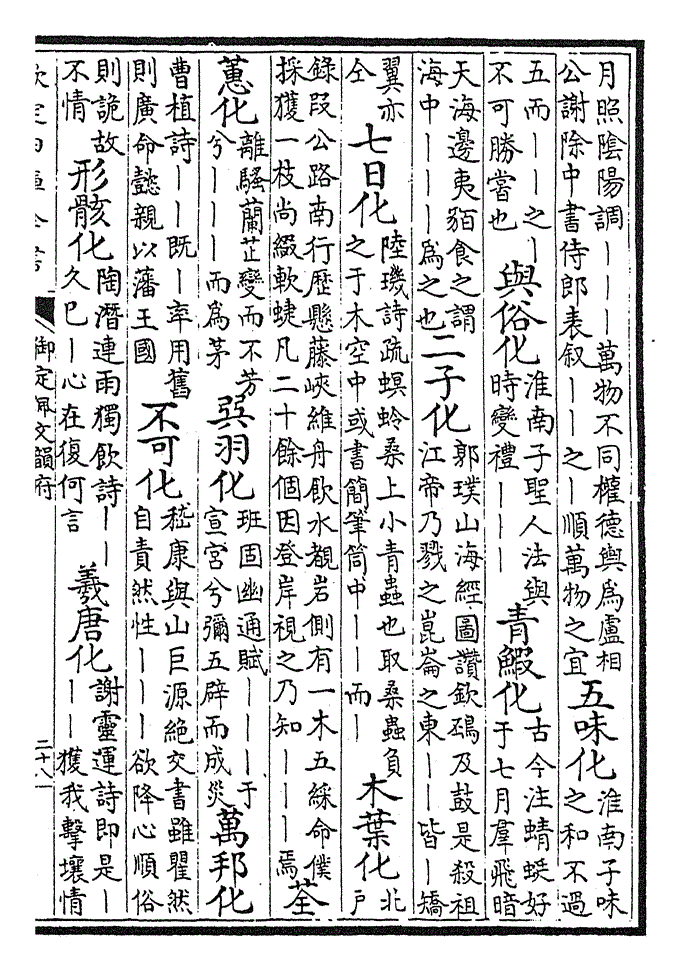 月照隂陽調｜｜｜萬物不同權德輿為盧相
公謝除中書侍郎表叙｜｜之｜順萬物之宜
五味化
淮南子味
之和不過
五而｜｜之｜
不可勝嘗也
與俗化
淮南子聖人法與
時變禮｜｜｜
青鰕化
古今注蜻蜓好
于七月羣飛暗
天海邊夷貊食之謂
海中｜｜｜為之也
二子化
郭璞山海經圖讚欽䲹及鼓是殺祖
江帝乃戮之崑崙之東｜｜皆｜矯
翼亦
仝
七日化
陸璣詩疏螟蛉桑上小青蟲也取桑蟲負
之于木空中或書簡筆筒中｜｜而｜
木葉化
北
戶
錄段公路南行歴懸藤峽維舟飲水觀岩側有一木五綵命僕
採獲一枝尚綴軟蜨凡二十餘個因登岸視之乃知｜｜｜焉
荃
蕙化
離騷蘭芷變而不芳
兮｜｜而為茅
巽羽化
班固幽通賦｜｜｜于
宣宮兮彌五辟而成災
萬邦化
曹植詩｜｜既｜率用舊
則廣命懿親以藩王國
不可化
嵇康與山巨源絶交書雖瞿然
自責然性｜｜｜欲降心順俗
則詭故
不情
形骸化
陶潛連雨獨飲詩｜｜
久已｜心在復何言
羲唐化
謝靈運詩即是｜
｜｜獲我擊壤情
欽定四庫全書
御定佩文韻府
二十八